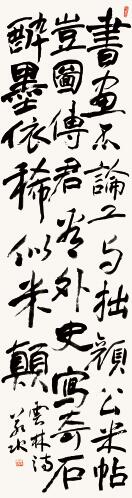 書畫不論工与拙顏公米帖
豈圖傳君看外史寫奇石
醉墨依稀似米顛
雲林詩